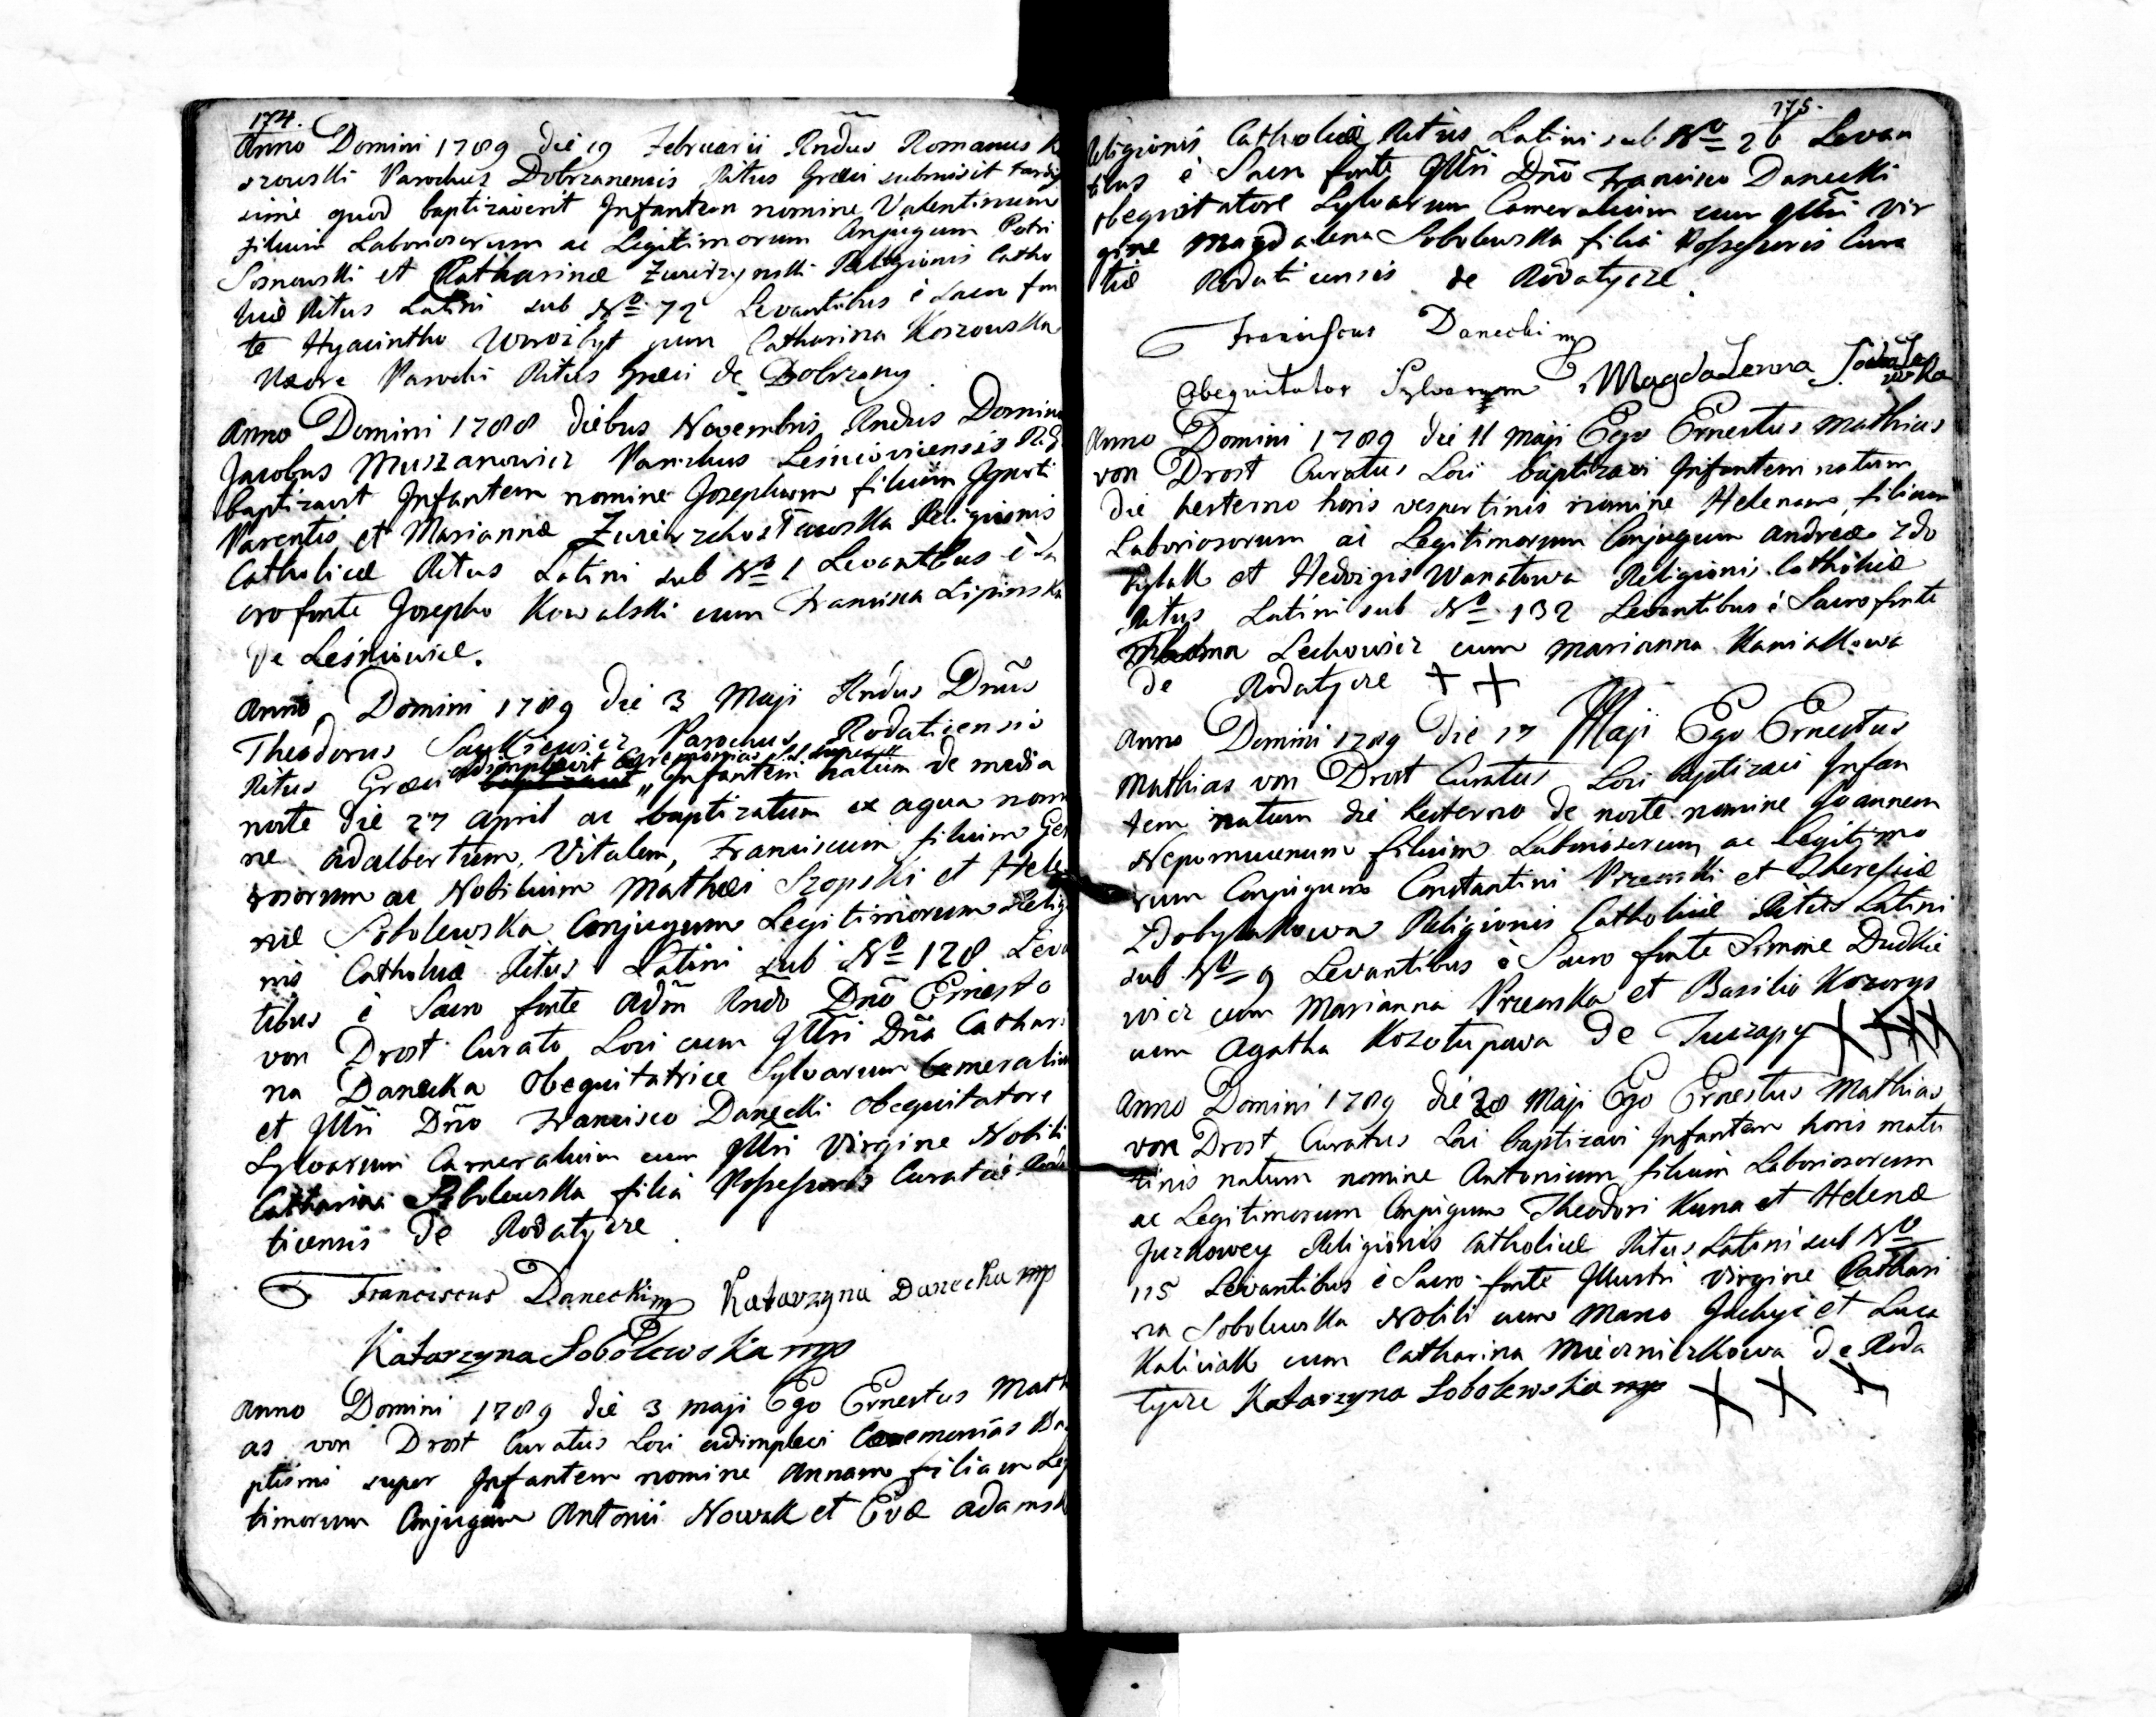 174.
Anno Domini 1789 die 19 Februarii Rndus Romanus
Parochus Dobrzanensis Ritus Græci submisit tardis
sime quod baptizaverit Infantem nomine Valentinum
filium Laboriosorum ac Legitimorum Conjugum Petri
Sosnowski et Catharinæ Zwierzynski Religionis Catho
licæ Ritus Latini sub No 72 Levantibus è Sacro fon
te Hyacintho cum Catharina Koszowska
Uxore Parochi Ritus Græci de Dobrzany.
Anno Domini 1788 diebus Novembris Rndus Dominus
Jacobus Muszanowicz Parochus Lesniovicensis
baptizavit Infantem nomine Josephum filium Ignoti
Parentis et Mariannæ Religionis
Catholicæ Ritus Latini sub No 1 Levantibus è Sa
cro fonte Josepho Kowalski cum Francisca Lipinska
de Leśniowice.
Anno Domini 1789 die 3 Maji Rndus Dnus
Theodorus Parochus Rodaticensis
Ritus Græci adimplevit Ceremonias super Infantem natum de media
nocte die 27 April ac baptizatum ex aqua nomi
ne Adalbertum, Vitalem, Franciscum filium Gene
rosorum ac Nobilium Mathæi Szopski et Hele
næ Sobolewska Conjugum Legitimorum Religio
nis Catholicæ Ritus Latini sub No 128 Levan
tibus è Sacro fonte Adm Rndo Dno Ernesto
von Drost Curato Loci cum Illri Dna Cathari
na Danecka Obequitatrice Sylvarum Cameralium
et Illri Dno Francisco Danecki Obequitatore
Sylvarum Cameralium cum Illri Virgine Nobili
Catharina Sobolewska filia Possessoris Curatiæ Roda
ticensis de Rodatycze.
Franciscus Danecki mp Katarzyna Danecka mp
Katarzyna Sobolewska mp
Anno Domini 1789 die 3 Maji Ego Ernestus Mathi
as von Drost Curatus Loci adimplevi Ceremonias Ba
ptismi super Infantem nomine Annam filiam Legi
timorum Conjugum Antonii Nowak et Evæ Adamsk
175.
Religionis Catholicæ Ritus Latini sub No 26 Levan
tibus è Sacro fonte Illri Dno Francisco Danecki
Obequitatore Sylvarum Cameralium cum Illri Vir
gine Magdalena Sobolewska filia Possessoris Cura
tiæ Rodaticensis de Rodatycze.
Franciscus Danecki mp
Obequitator Sylvarum Magdalenna Sobolewska
Anno Domini 1789 die 11 Maji Ego Ernestus Mathias
von Drost Curatus Loci baptizavi Infantem natam
die hesterno horis vespertinis nomine Helenam filiam
Laboriosorum ac Legitimorum Conjugum Andreæ Zdo
bylak et Hedvigis Wanatowa Religionis Catholicæ
Ritus Latini sub No 132 Levantibus è Sacro fonte
Thoma Lechowicz cum Marianna Kaniakowa
de Rodatycze + +
Anno Domini 1789 die 17 Maji Ego Ernestus
Mathias von Drost Curatus Loci baptizavi Infan
tem natum die hesterno de nocte nomine Joannem
Nepomucenum filium Laboriosorum ac Legitimo
rum Conjugum Constantini et Theresiæ
Zdobylakowa Religionis Catholicæ Ritus Latini
sub No 9 Levantibus è Sacro fonte Simone Dudkie
wicz cum Marianna et Basilio
cum Agatha de X X X X
Anno Domini 1789 die 28 Maji Ego Ernestus Mathias
von Drost Curatus Loci baptizavi Infantem horis matu
tinis natum nomine Antonium filium Laboriosorum
ac Legitimorum Conjugum Theodori Kuna et Helenæ
Religionis Catholicæ Ritus Latini sub No
115 Levantibus è Sacro fonte Illustri Virgine Cathari
na Sobolewska Nobili cum Marco et Luca
Kaliciak cum Catharina Miecznikowa de Roda
tycze Katarzyna Sobolewska mp X X X